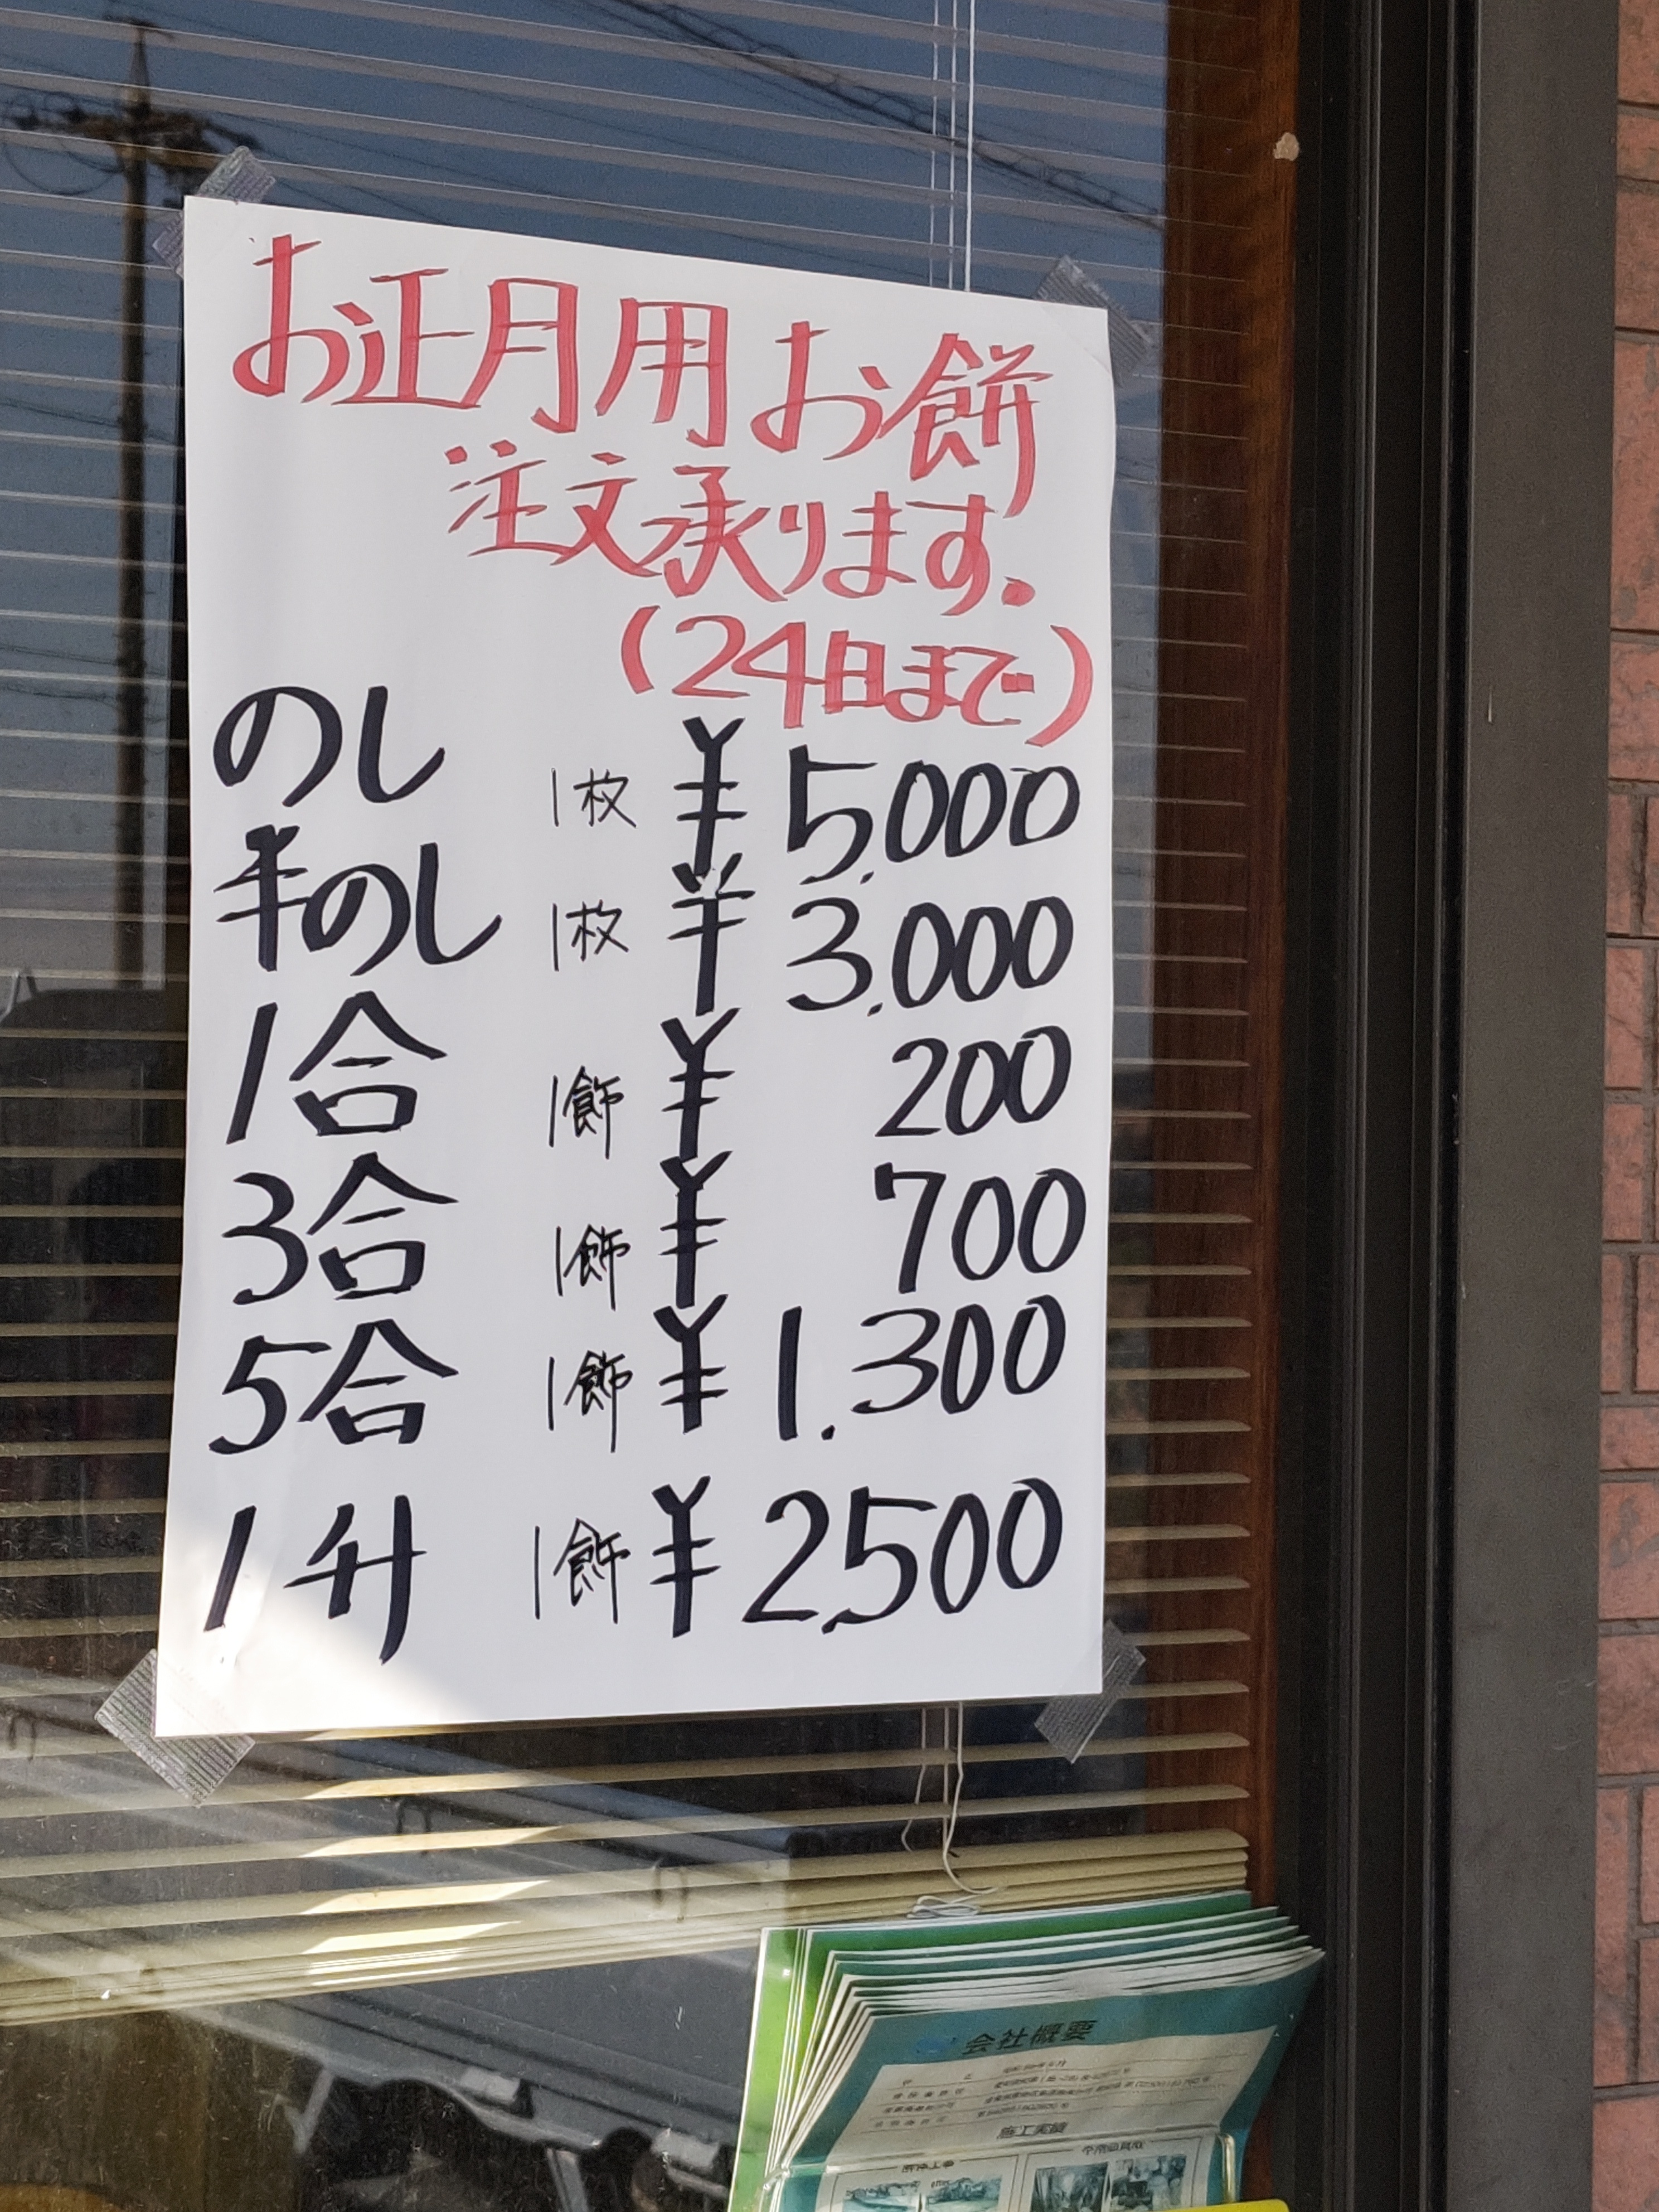 お正月用お餅
注文承ります.
(24日まで)
のし 1枚 ¥5,000
半のし 1枚 ¥3,000
1合 1飾 ¥200
3合 1飾 ¥700
5合 1飾 ¥1,300
1升 1飾 ¥2,500
会社概要
施工実績